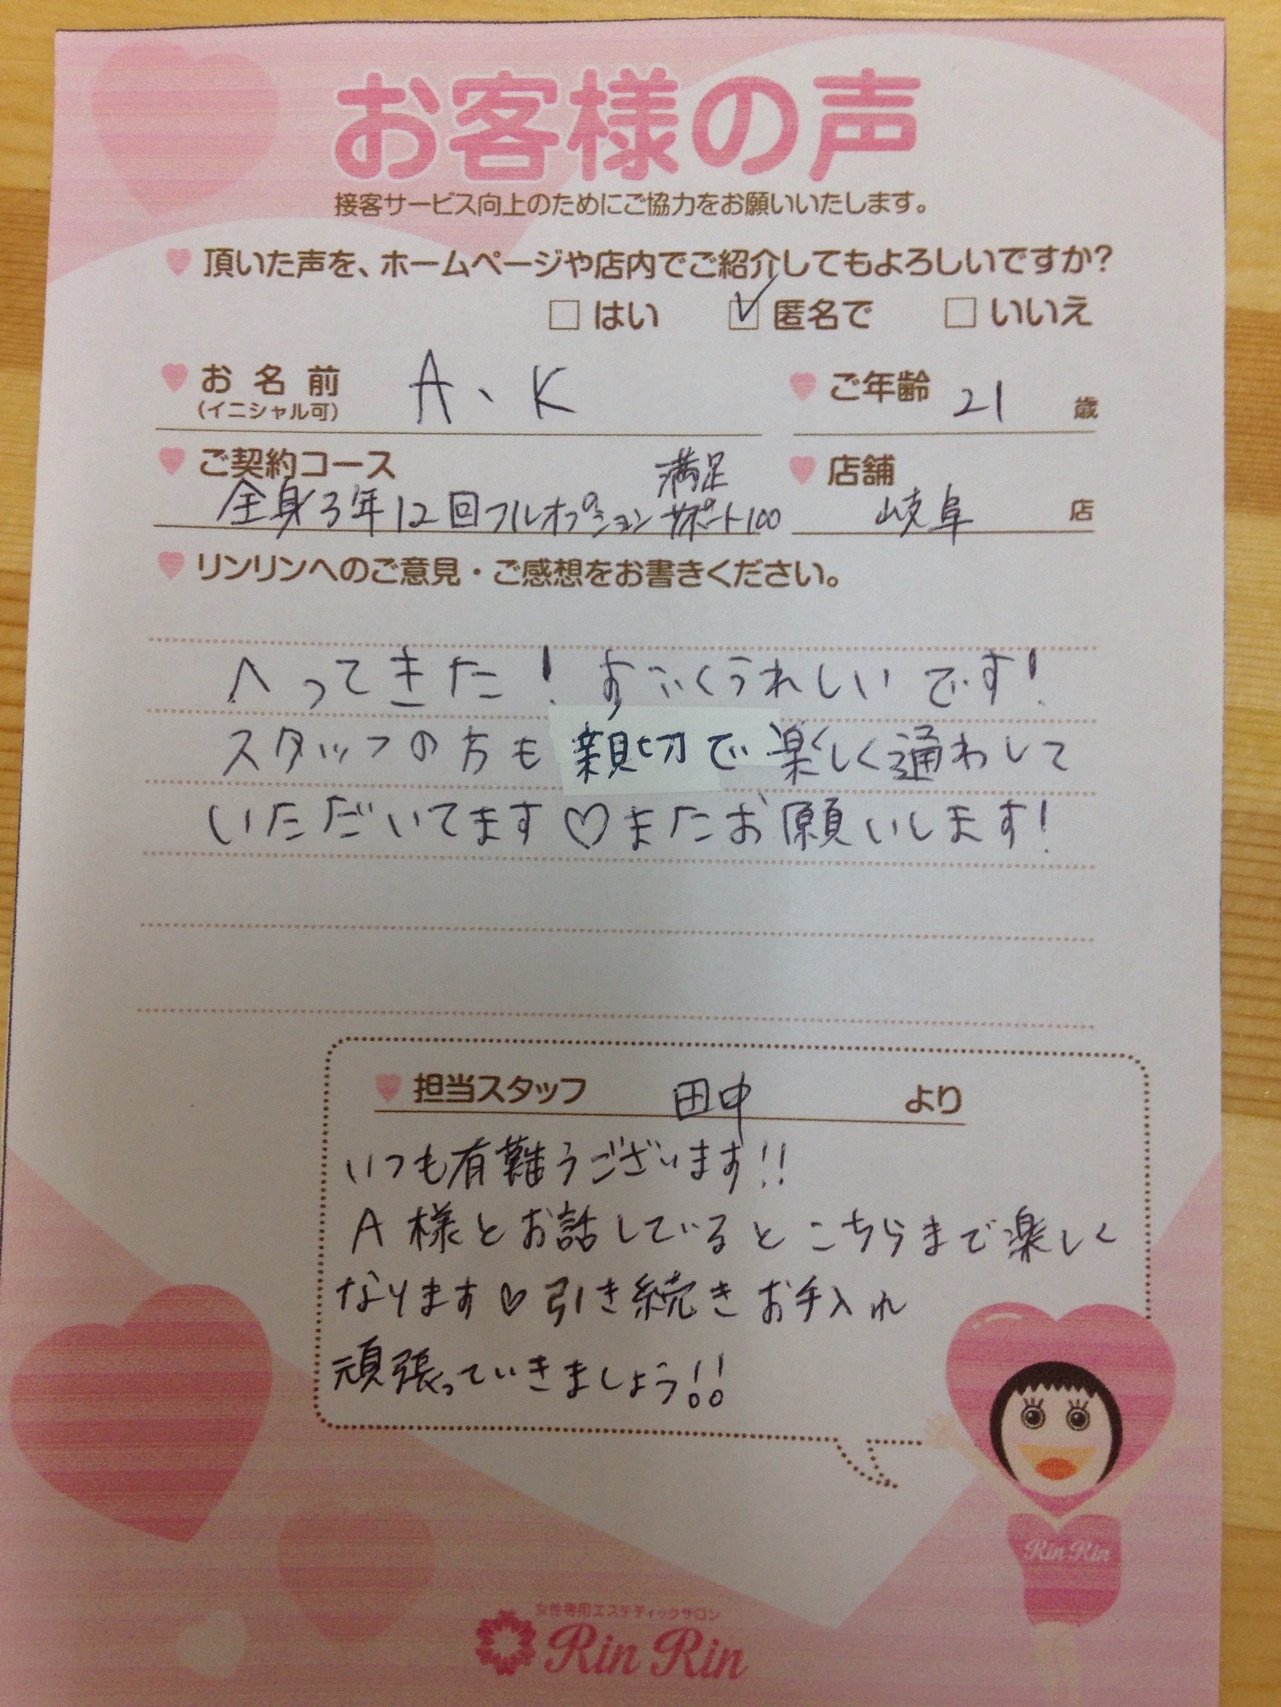 お客様の声
接客サービス向上のためにご協力をお願いいたします。
頂いた声を、ホームページや店内でご紹介してもよろしいですか?
□ はい ☑ 匿名で □ いいえ
お名前 A、K ご年齢 21 歳
(イニシャル可)
ご契約コース 満足 店舗
全身3年12回フルオプション サポート100 岐阜 店
リンリンへのご意見・ご感想をお書きください。
へってきた!すごくうれしいです!
スタッフの方も親切で楽しく通わして
いただいてます♡またお願いします!
担当スタッフ 田中 より
いつも有難うございます!!
A様とお話しているとこちらまで楽しく
なります♡引き続きお手入れ
頑張っていきましょう!!
Rin Rin
女性専用エステティックサロン
Rin Rin